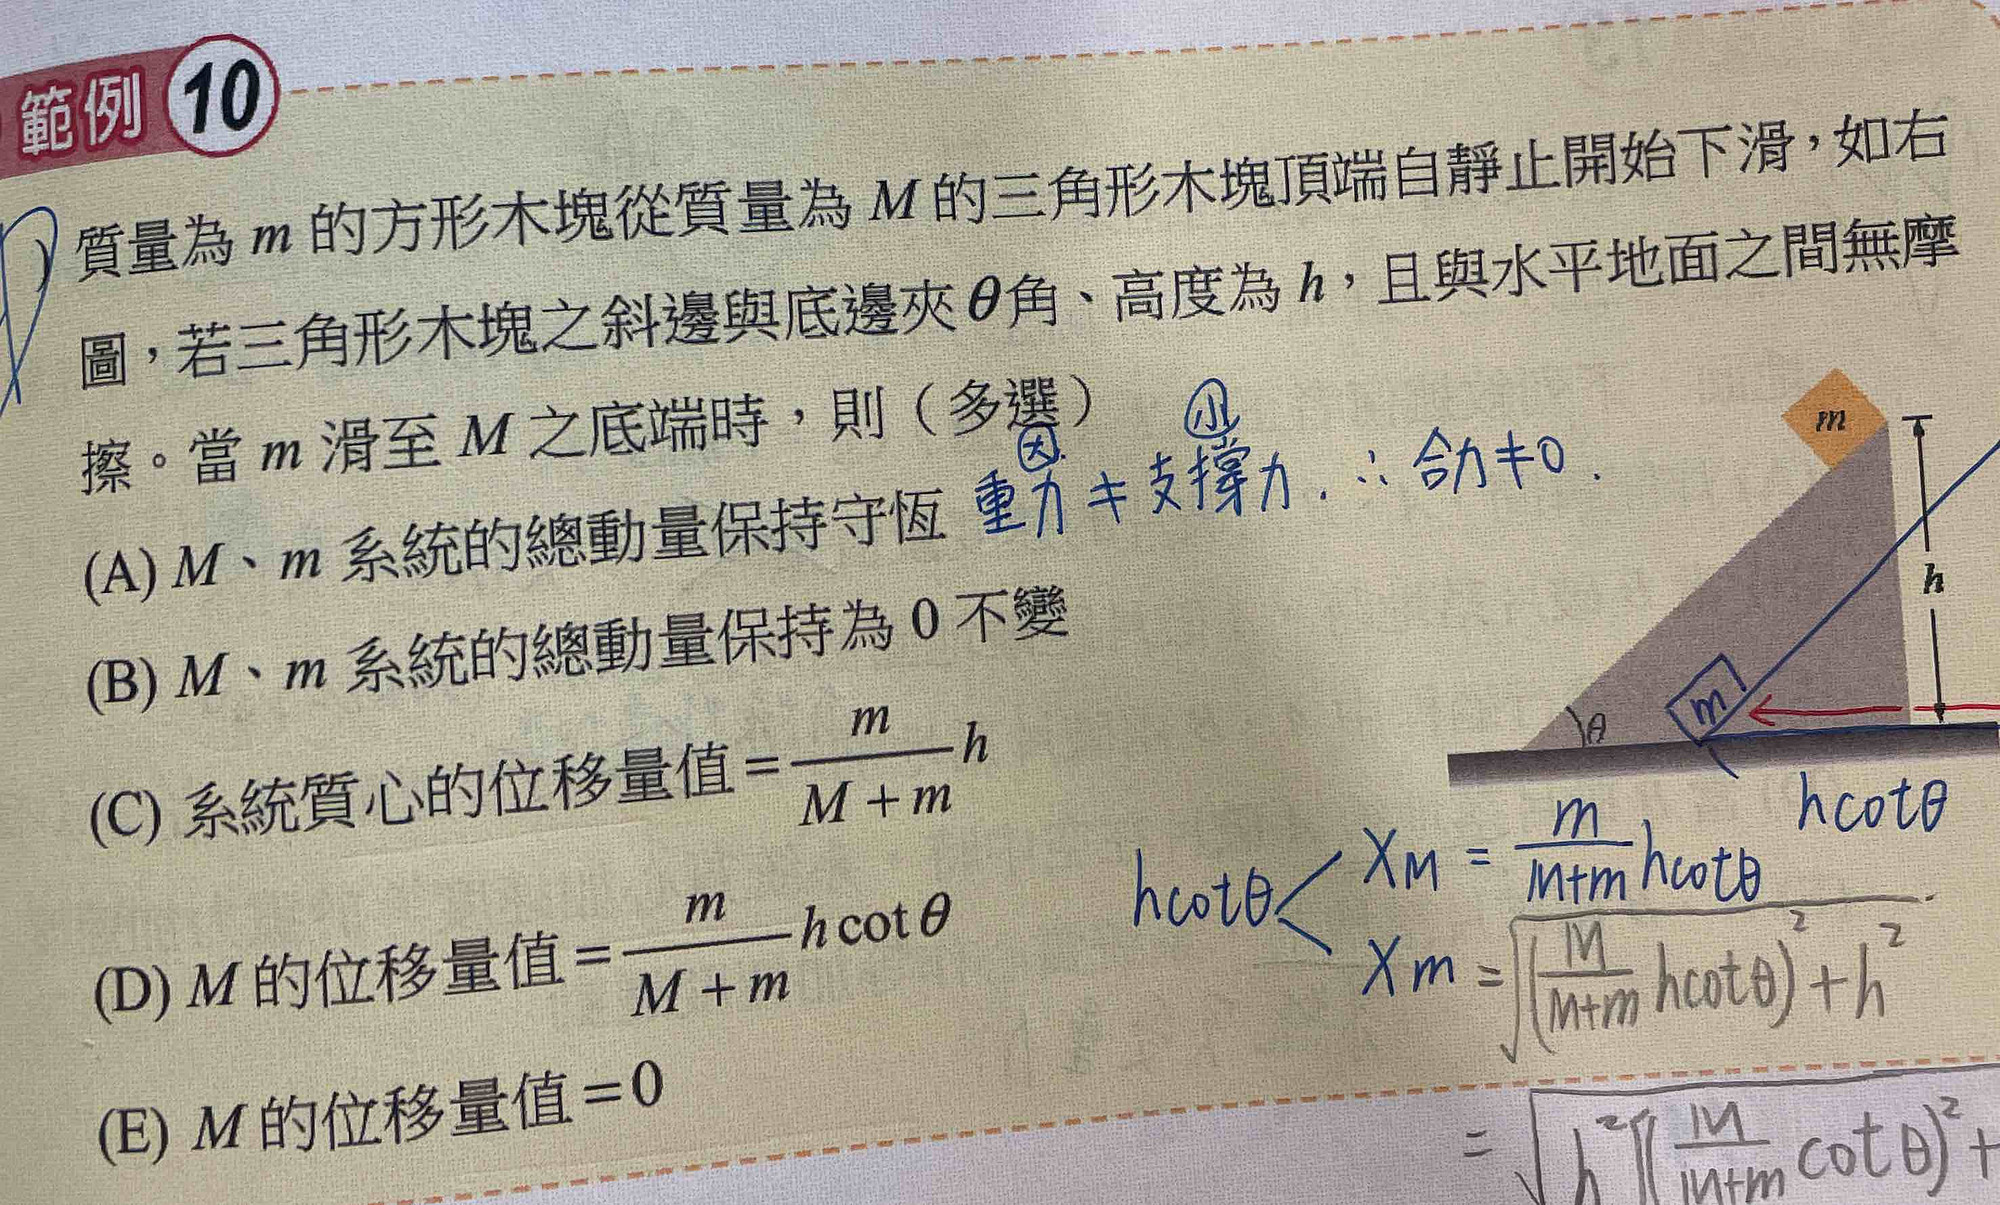 範例 10
質量為 m 的方形木塊從質量為 M 的三角形木塊頂端自靜止開始下滑，如右
圖，若三角形木塊之斜邊與底邊夾θ角、高度為 h，且與水平地面之間無摩
擦。當 m 滑至 M 之底端時，則（多選）
大 小
重力≠支撐力. ∴ 合力≠0.
(A) M、m 系統的總動量保持守恆
(B) M、m 系統的總動量保持為 0 不變
(C) 系統質心的位移量值 = m/(M + m) h
(D) M 的位移量值 = m/(M + m) h cot θ
(E) M 的位移量值 = 0
m
h
m
θ
hcotθ
hcotθ < X_M = m/(M+m) hcotθ
X_m = √((M/(M+m) hcotθ)² + h²)
= √(h²[(M/(M+m) cotθ)² +